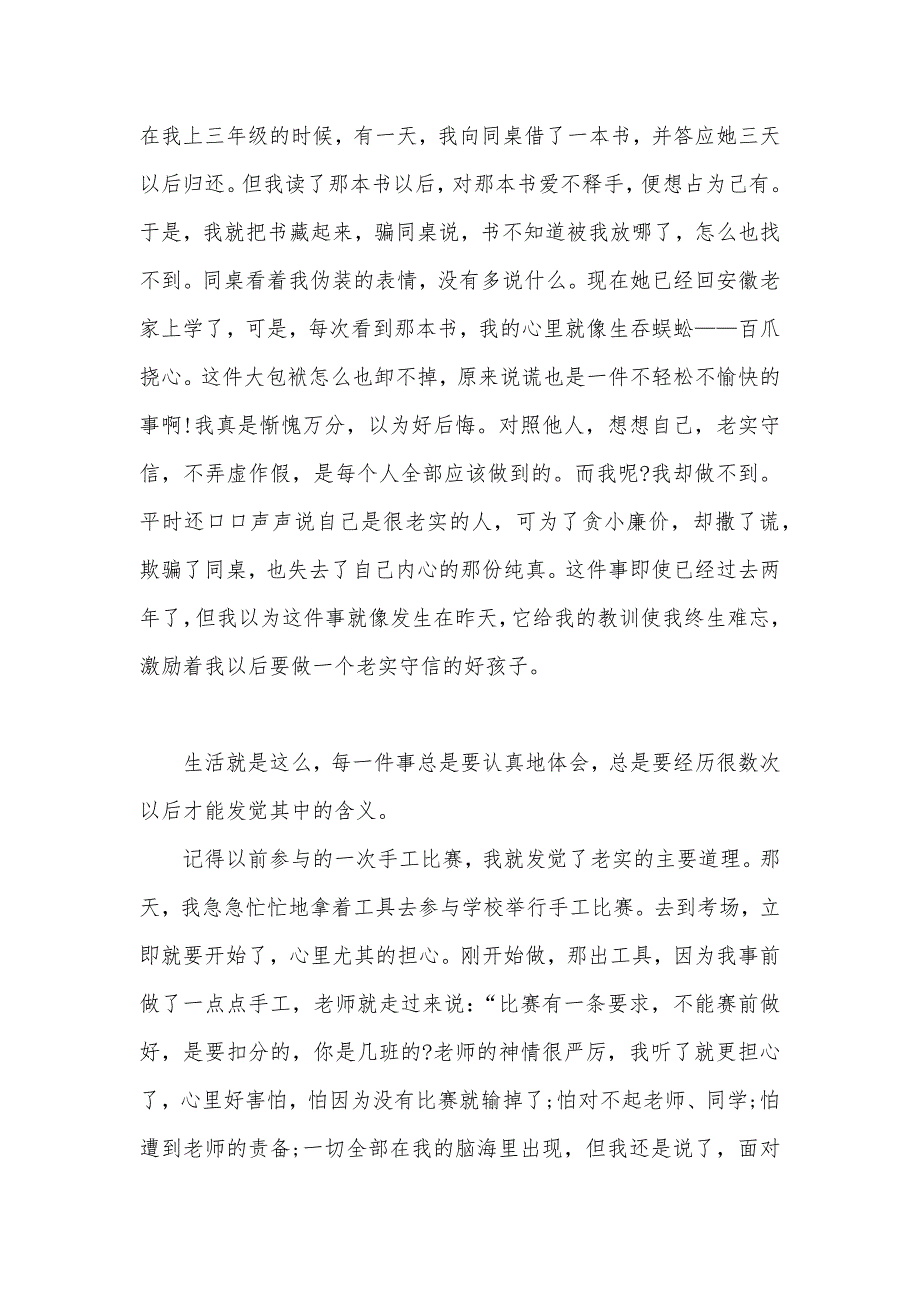 在我上三年级的时候，有一天，我向同桌借了一本书，并答应她三天
以后归还。但我读了那本书以后，对那本书爱不释手，便想占为己有。
于是，我就把书藏起来，骗同桌说，书不知道被我放哪了，怎么也找
不到。同桌看着我伪装的表情，没有多说什么。现在她已经回安徽老
家上学了，可是，每次看到那本书，我的心里就像生吞蜈蚣——百爪
挠心。这件大包袱怎么也卸不掉，原来说谎也是一件不轻松不愉快的
事啊!我真是惭愧万分，以为好后悔。对照他人，想想自己，老实守
信，不弄虚作假，是每个人全部应该做到的。而我呢?我却做不到。
平时还口口声声说自己是很老实的人，可为了贪小廉价，却撒了谎，
欺骗了同桌，也失去了自己内心的那份纯真。这件事即使已经过去两
年了,但我以为这件事就像发生在昨天,它给我的教训使我终生难忘，
激励着我以后要做一个老实守信的好孩子。
生活就是这么，每一件事总是要认真地体会，总是要经历很数次
以后才能发觉其中的含义。
记得以前参与的一次手工比赛，我就发觉了老实的主要道理。那
天，我急急忙忙地拿着工具去参与学校举行手工比赛。去到考场，立
即就要开始了，心里尤其的担心。刚开始做，那出工具，因为我事前
做了一点点手工，老师就走过来说：“比赛有一条要求，不能赛前做
好，是要扣分的，你是几班的?老师的神情很严厉，我听了就更担心
了，心里好害怕，怕因为没有比赛就输掉了;怕对不起老师、同学;怕
遭到老师的责备;一切全部在我的脑海里出现，但我还是说了，面对